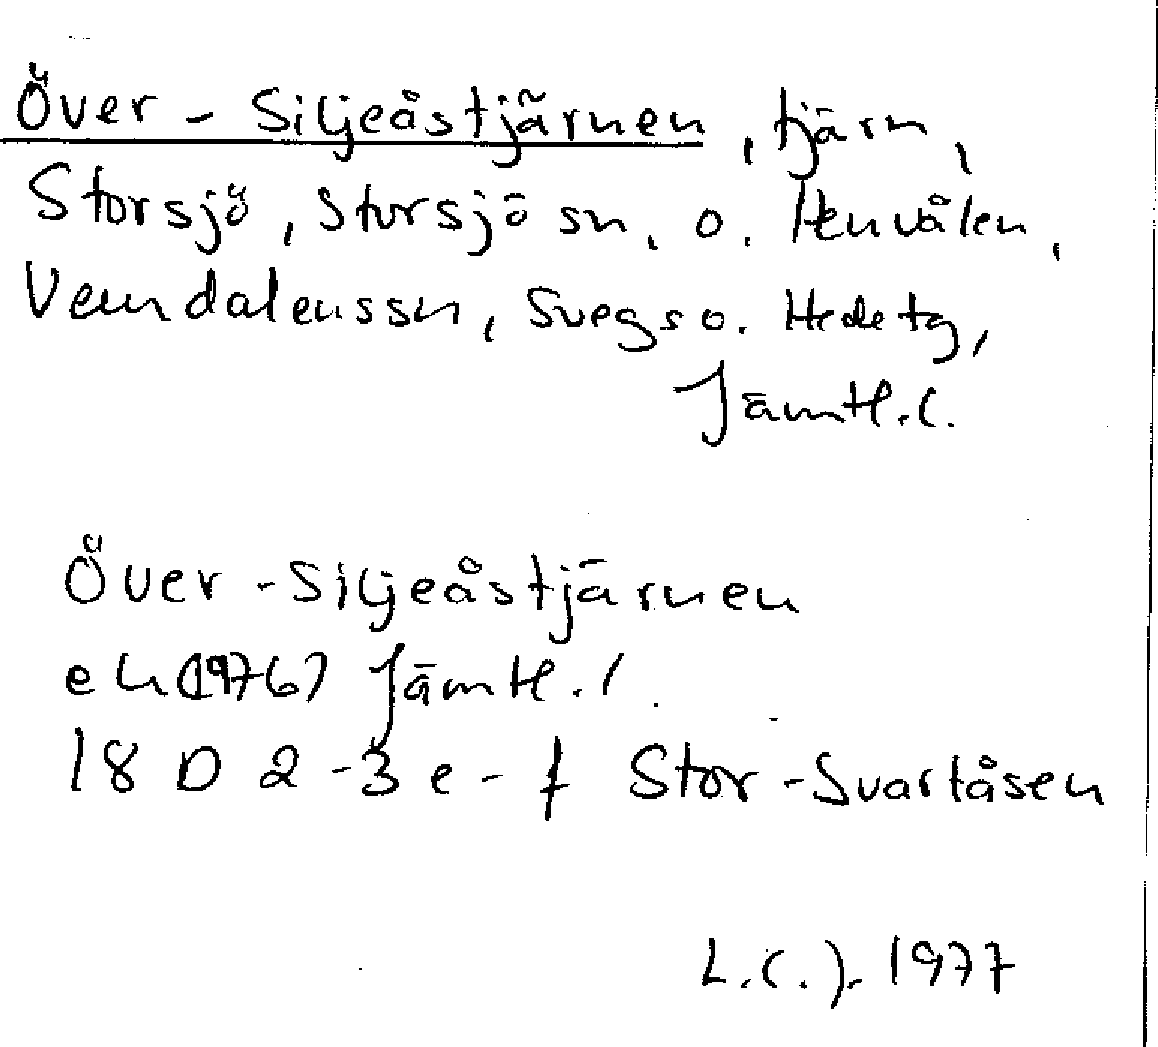 Över-Siljeåstjärnen, tjärn,
Storsjö, Storsjö sn, o. Henvålen,
Vemdalens sn, Svegs o. Hede tg,
Jämtl.l.
Över-Siljeåstjärnen
ek (1976) Jämtl.l.
18 D 2-3 e-f Stor-Svartåsen
1977